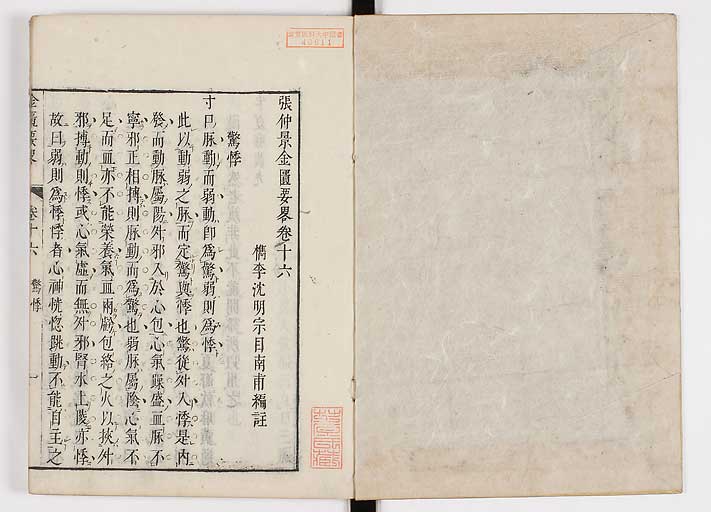 張仲景金匱要畧卷十六
檇李沈明宗目南甫編註
驚悸
寸口脉動而弱動即爲驚弱則爲悸
此以動弱之脉而定驚與悸也驚從外入悸是内
發而動脉屬陽外邪入於心包心氣躁盛血脉不
寧邪正相搏則脉動而爲驚也弱脉屬陰心氣不
足而血亦不能榮養氣血兩虧包絡之火以挾外
邪搏動則悸或心氣虛而無外邪腎水上凌亦悸
故曰弱則爲悸悸者心神恍惚跳動不能自主之
金匱要畧
卷十六
驚悸
一